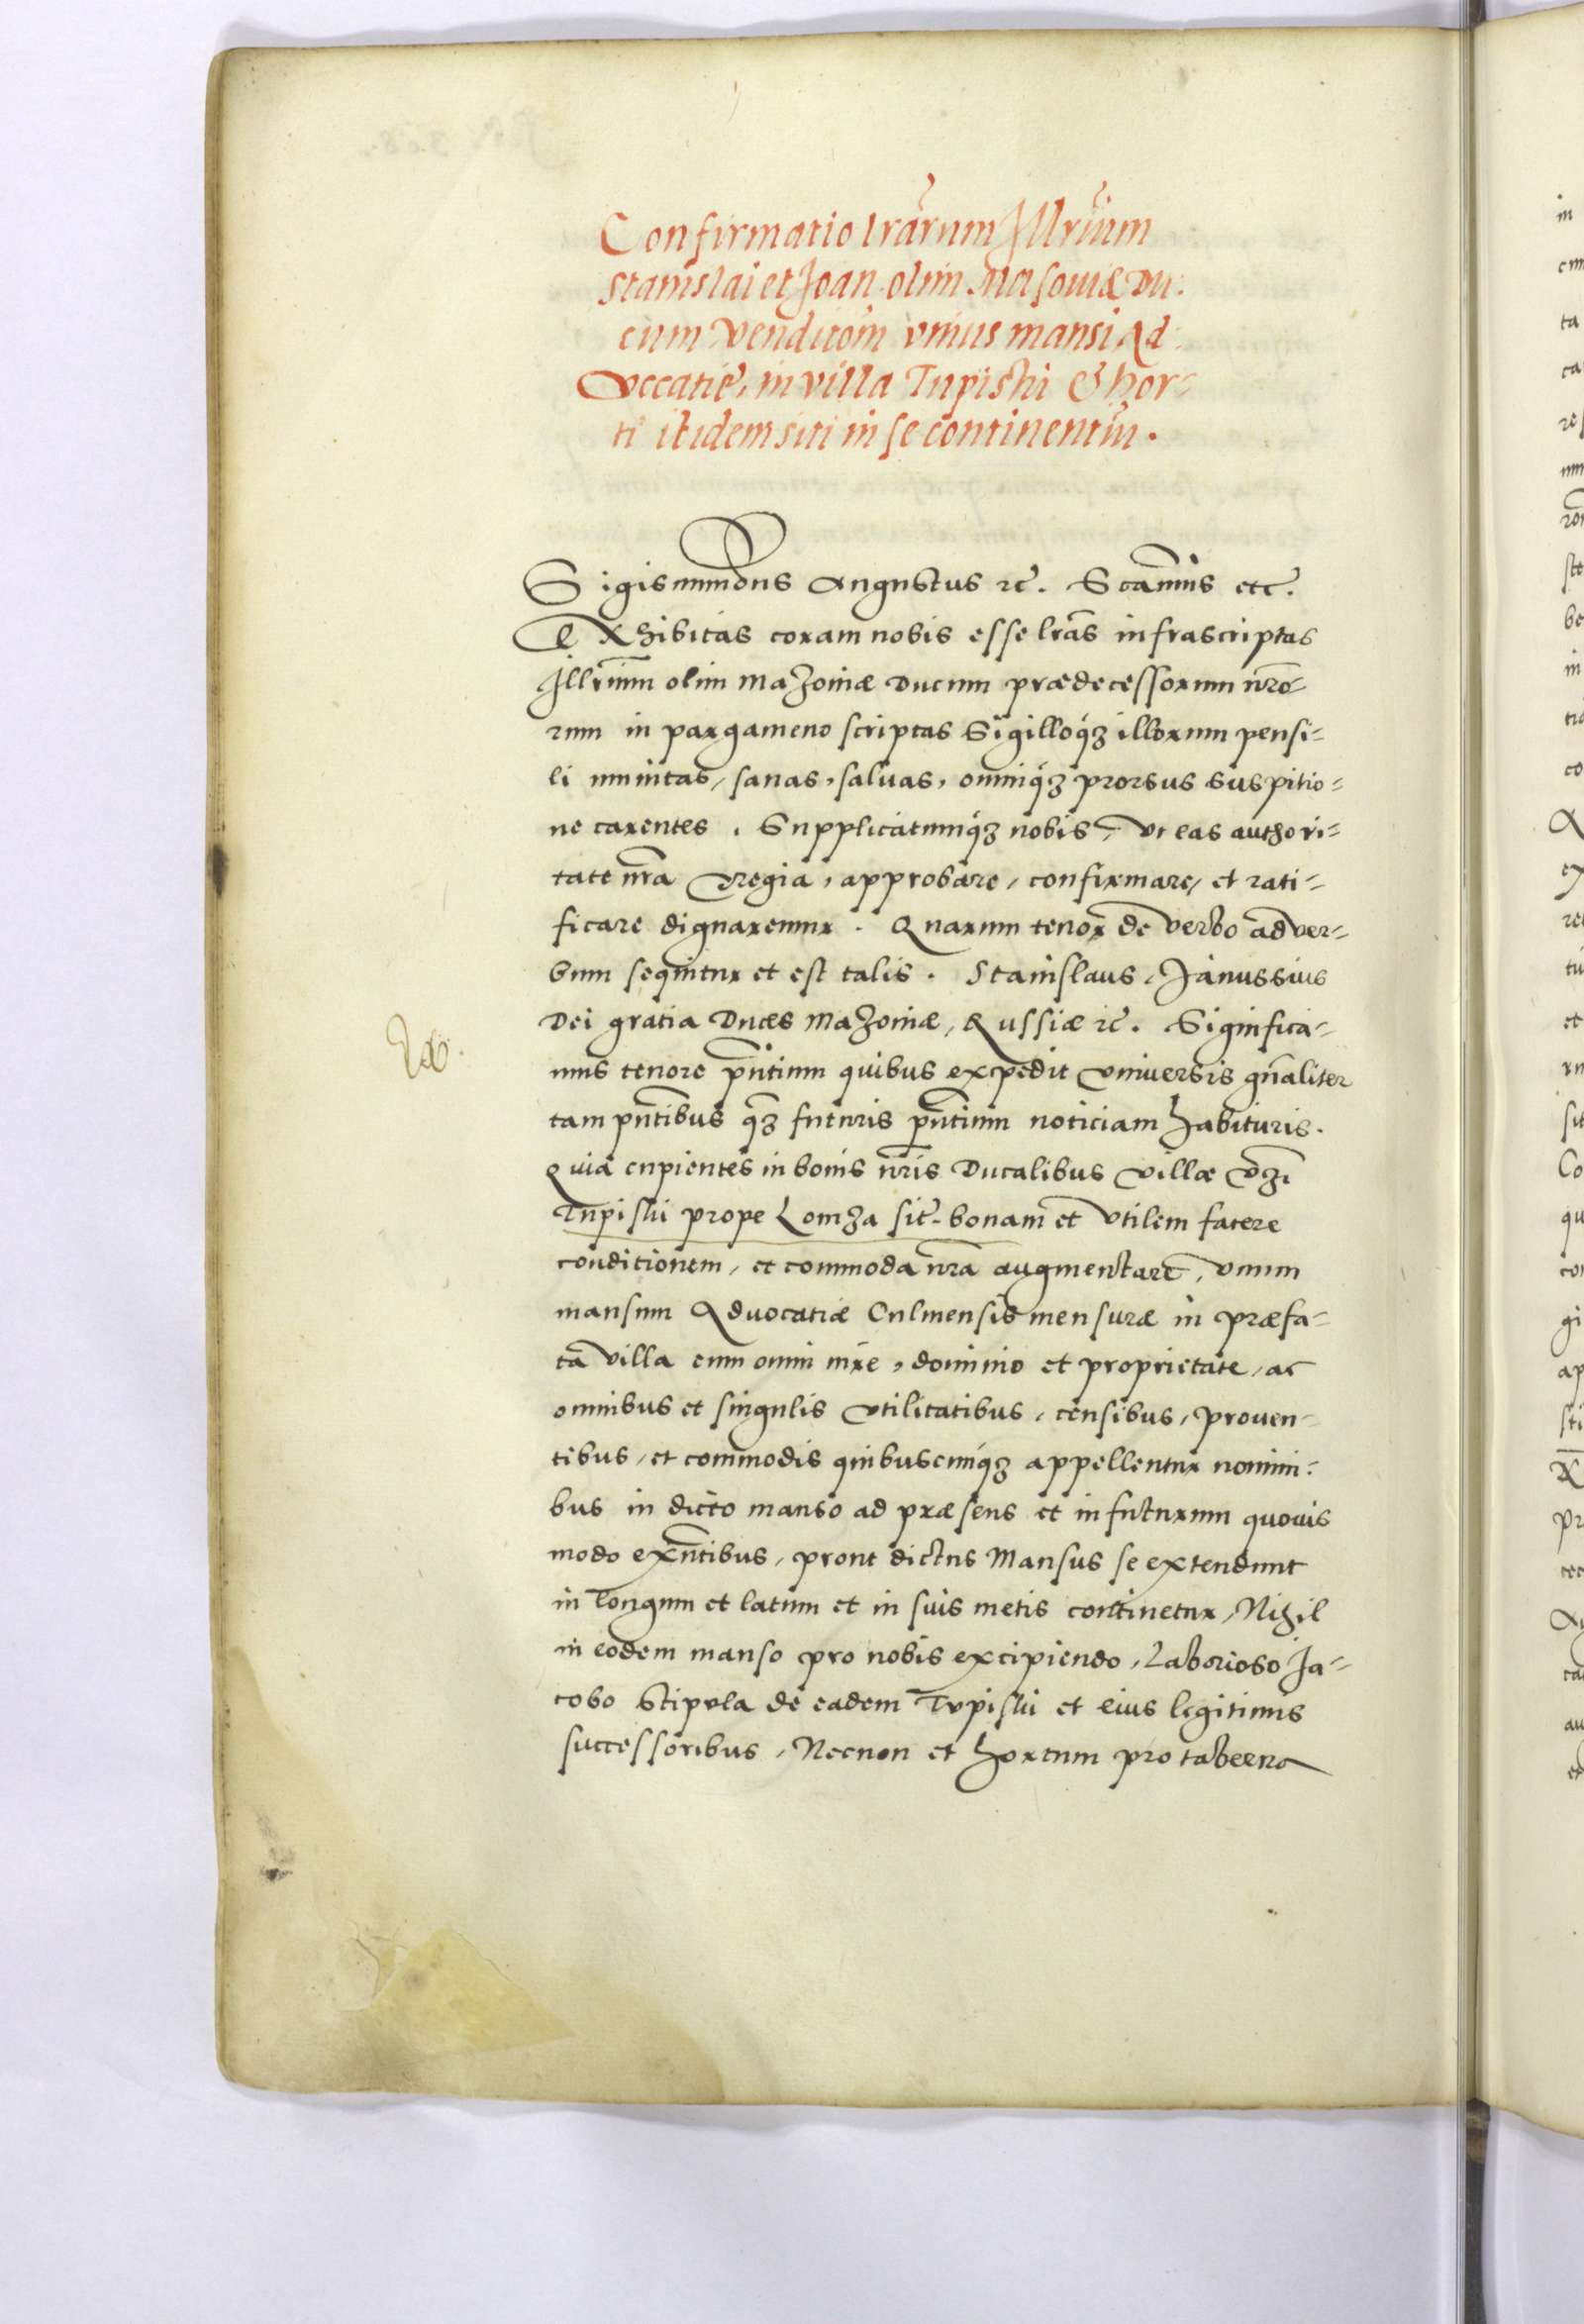 Confirmatio lrarum Illrium
Stanislai et Joan. olim Masouiæ Du-
cum venditom vnius mansi Ad-
vocatię, in villa Tupisthi & hor-
ti ibidem siti in se continentiu.
Sigismundus Augustus rc. Scamus etc.
Exhibitas coram nobis esse lras infrascriptas
Illrium olim Mazouiæ Ducum prædecessorum nro-
rum in pargameno scriptas Sigilloqꝫ illorum pensi-
li munitas, sanas, saluas, omniqꝫ prorsus suspitio-
ne carentes. Supplicatumqꝫ nobis, vt eas authori-
tate nra regia, approbare, confirmare, et rati-
ficare dignaremur. Quarum tenor de verbo ad ver-
bum sequitur et est talis. Stanislaus, Janussius
Dei gratia Duces Mazouiæ, Russiæ rc. Significa-
mus tenore pntium quibus expedit vniuersis gnaliter
tam pntibus qꝫ futuris pntium noticiam habituris.
Quia cupientes in bonis nris Ducalibus villæ vꝫ
Tupisthi prope Lomza sit. bonam et vtilem facere
conditionem, et commoda nra augmentare, vnum
mansum Aduocatiæ Culmensis mensuræ in præfa-
ta villa cum omni iure, dominio et proprietate, ac
omnibus et singulis vtilitatibus, censibus, prouen-
tibus, et commodis quibuscunqꝫ appellentur nomini-
bus in dicto manso ad præsens et in futurum quouis
modo exntibus, prout dictus Mansus se extendunt
in longum et latum et in suis metis continetur, Nihil
in eodem manso pro nobis excipiendo, Laborioso Ja-
cobo Stipula de eadem Tupisthi et eius legitimis
successoribus, Necnon et hortum pro taberna